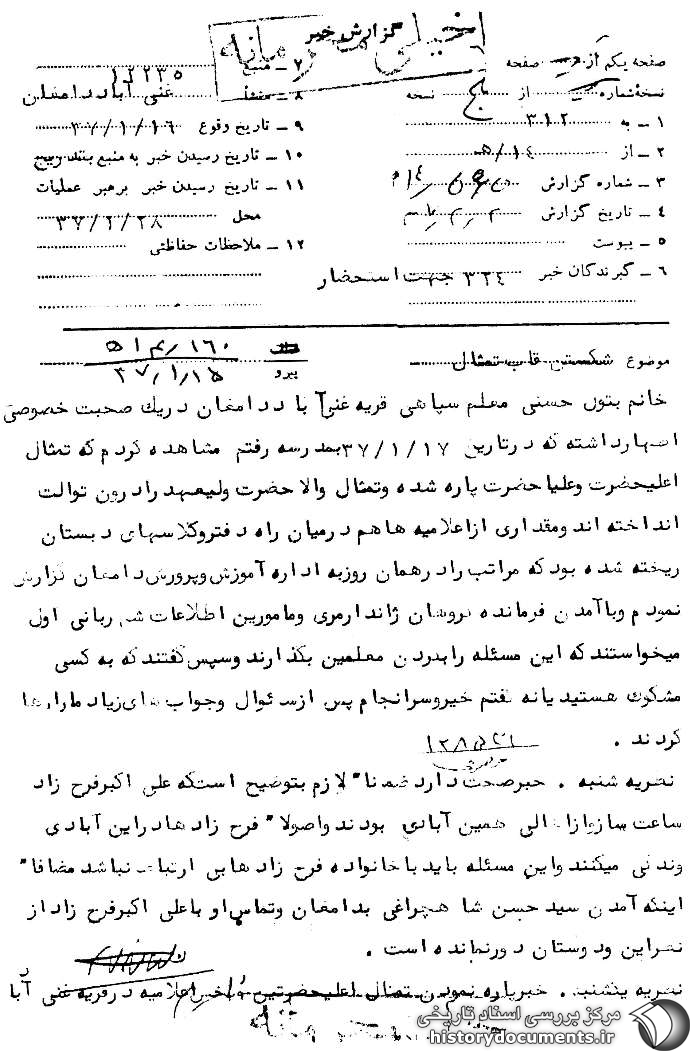 گزارش خبر
خیلی محرمانه
صفحه یکم از صفحه
نسخه شماره از نسخه
۱ - به ۳۱۲
۲ - از ۱۴/ه
۳ - شماره گزارش
۴ - تاریخ گزارش
۵ - پیوست
۶ - گیرندگان خبر ۳۳۴ جهت استحضار
۷ - منبع ۱۲۲۳۵
۸ - منشأ غنی آباد دامغان
۹ - تاریخ وقوع ۳۷/۱/۱۶
۱۰ - تاریخ رسیدن خبر به منبع
۱۱ - تاریخ رسیدن خبر برهبر عملیات
محل ۳۷/۱/۲۸
۱۲ - ملاحظات حفاظتی
موضوع شکستن قاب تمثال
پیرو ۱۶۰ ۳۷/۱/۱۵
خانم بتون حسنی معلم سپاهی قریه غنی آباد دامغان دریك صحبت خصوصی
اظهارداشته که درتاریخ ۳۷/۱/۱۷ بمدرسه رفتم مشاهده کردم که تمثال
اعلیحضرت وعلیاحضرت پاره شده وتمثال والاحضرت ولیعهد رادرون توالت
انداخته اند ومقداری ازاعلامیه هاهم درمیان راه دفتروکلاسهای دبستان
ریخته شده بود که مراتب رادرهمان روزبه اداره آموزش وپرورش دامغان گزارش
نمودم وباآمدن فرمانده گروهان ژاندارمری ومامورین اطلاعات شهربانی اول
میخواستند که این مسئله رابگردن معلمین بگذارند وسپس گفتند که به کسی
مشکوك هستید یانه گفتم خیروسرانجام پس ازسئوال وجواب های زیاد مارارها
کردند .
نظریه شنبه . خبرصحت دارد ضمنا" لازم بتوضیح است که علی اکبرفرح زاد
ساعت سازوازاهالی همین آبادی بودند واصولا" فرح زادهادراین آبادی
زندگی میکنند واین مسئله باید باخانواده فرح زادهابی ارتباط نباشد مضافا"
اینکه آمدن سید حسن شاهچراغی بدامغان وتماس اوباعلی اکبرفرح زاد از
نظراین دودوستان دورنمانده است .
نظریه یکشنبه . خبرپاره نمودن تمثال اعلیحضرتین وپخش اعلامیه درقریه غنی آباد
مرکز بررسی اسناد تاریخی
historydocuments.ir